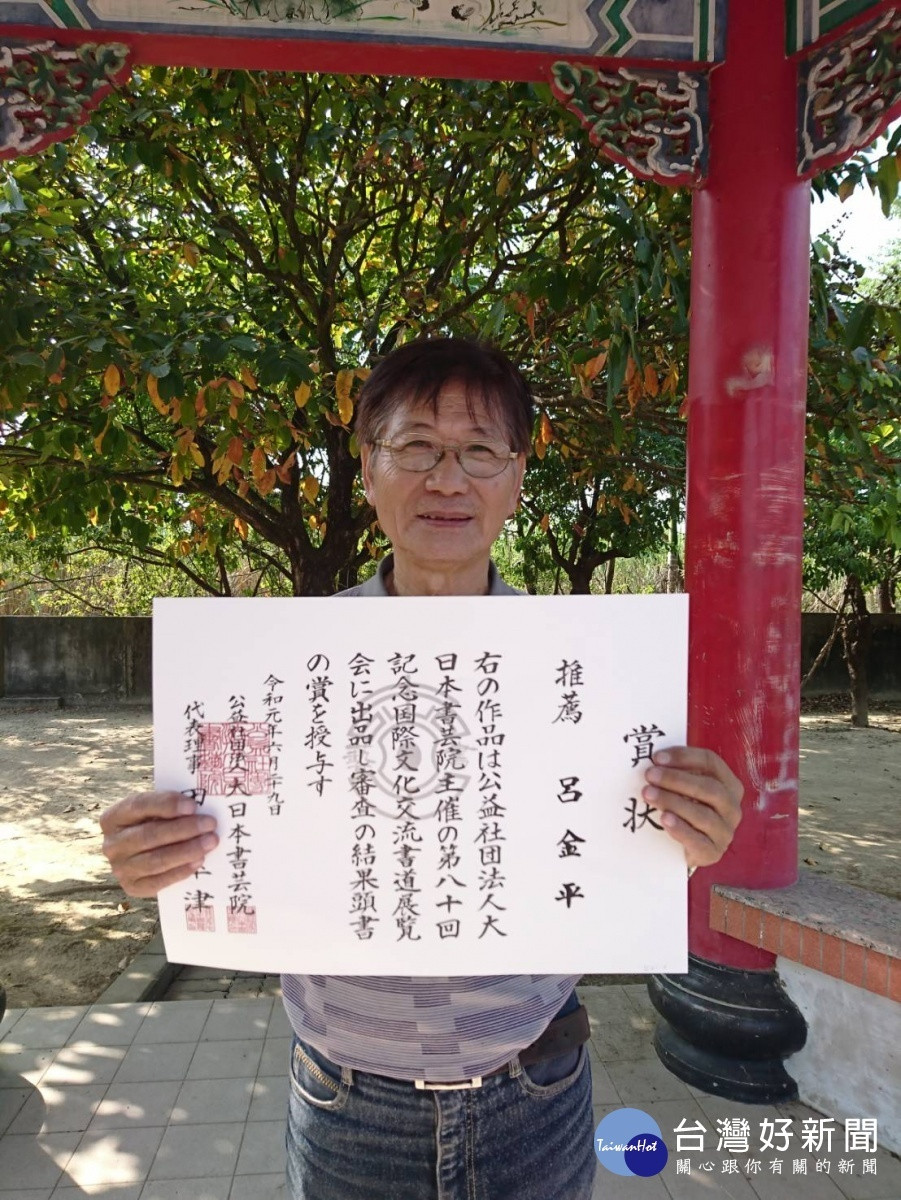 賞状
推薦 呂金平
右の作品は公益社団法人大
日本書芸院主催の第八十回
記念国際文化交流書道展覧
会に出品し審査の結果頭書
の賞を授与す
令和元年六月二十九日
公益社団法人大日本書芸院
代表理事
津
TaiwanHot
台灣好新聞
關心跟你有關的新聞